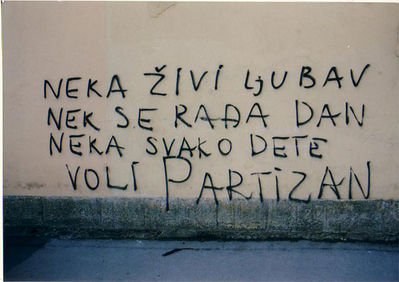 NEKA ŽIVI LjUBAV
NEK SE RAĐA DAN
NEKA SVAKO DETE
VOLI PARTIZAN